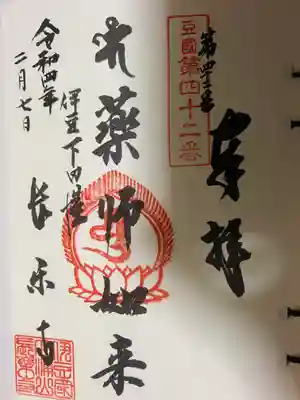 豆國第四十二番
奉拝
お薬師如来
伊豆下田港
長楽寺
令和四年
二月七日